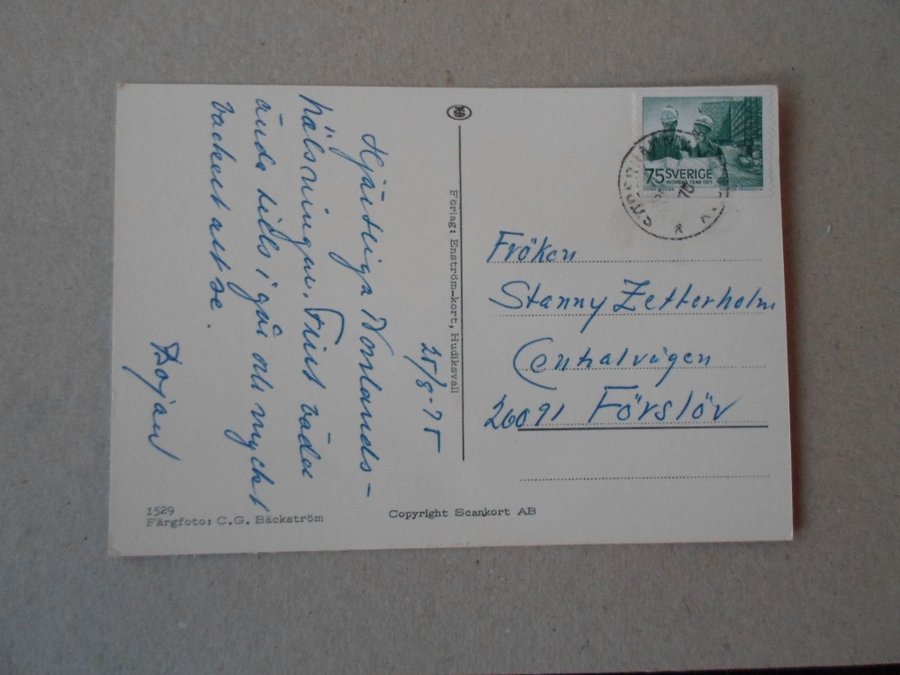 25/8-75
Hjärtliga Norrlands-
hälsningar. Fint väder
ända tills i går och mycket
vackert att se.
75 SVERIGE
Fröken
Stanny Zetterholm
Centralvägen
26091 Förslöv
Förlag: Enström-kort, Hudiksvall
1529
Färgfoto: C.G. Bäckström
Copyright Scankort AB